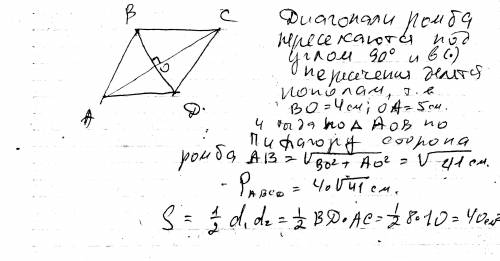 B C
A D.
Диагонали ромба
пересекаются под
углом 90° и в (·)
пересечения делятся
пополам, т.е
BO=4см; OA=5см.
и тогда по Δ AOB по
Пифагору сторона
ромба AB = √BO² + AO² = √41 см.
P ABCD = 4·√41 см.
S = 1/2 d₁ d₂ = 1/2 BD·AC = 1/2 8·10 = 40см²